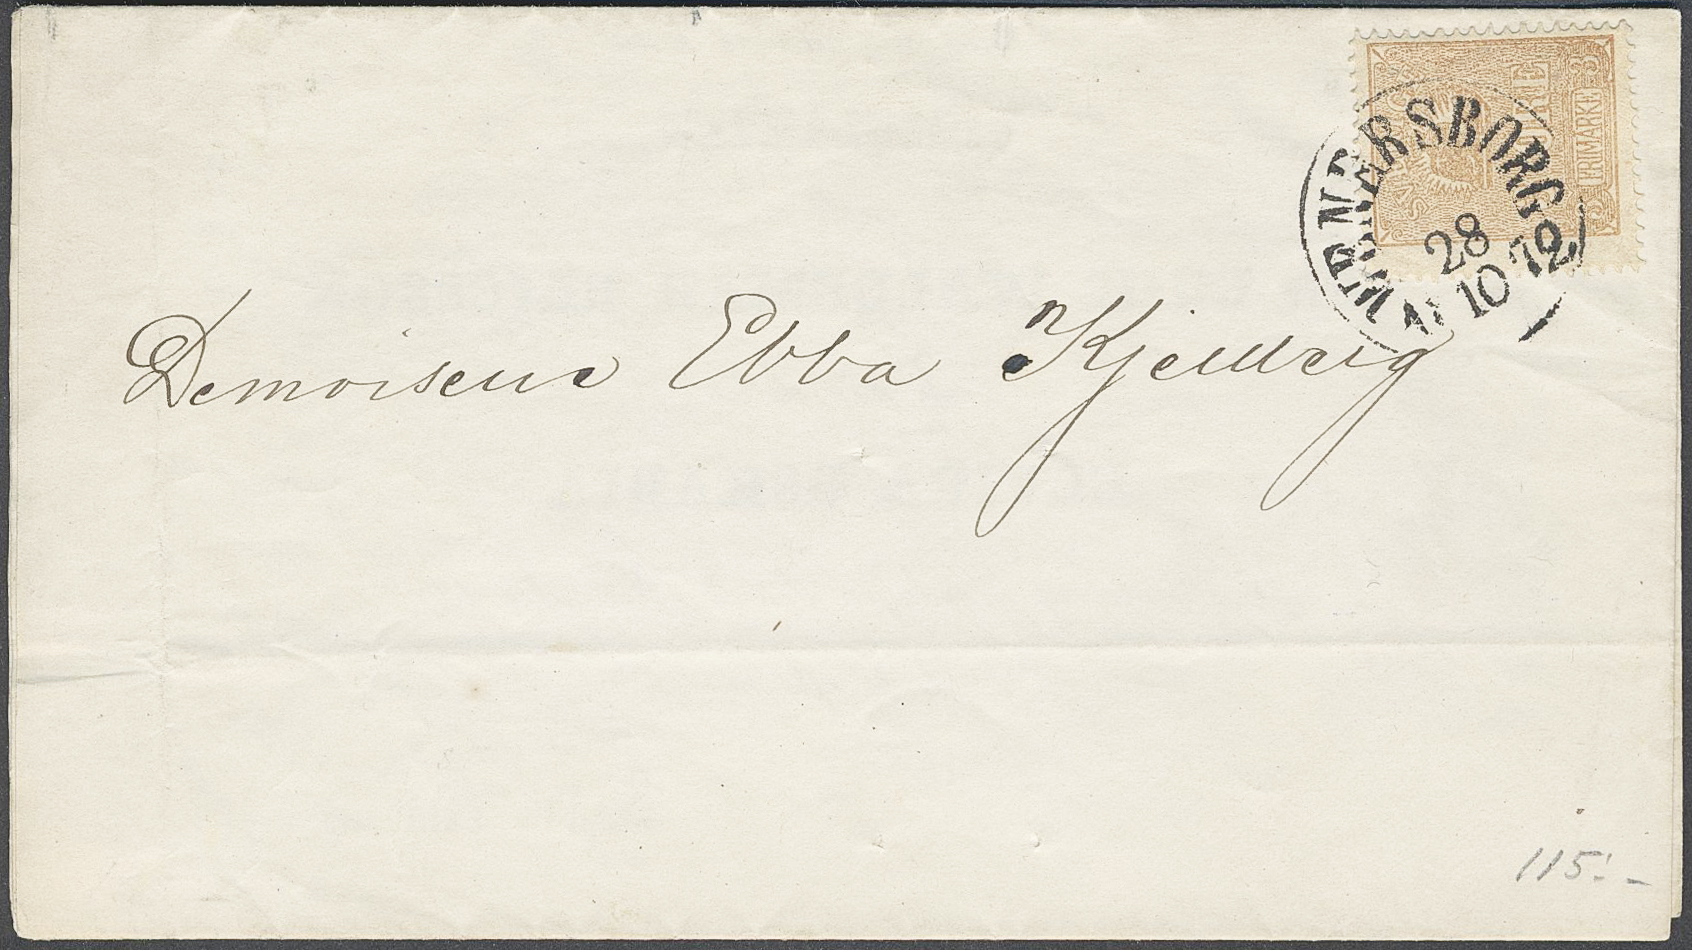 3 FRIMÄRKE
WENERSBORG
28
10
72
Demoiselle Ebba Kjellberg
115:-